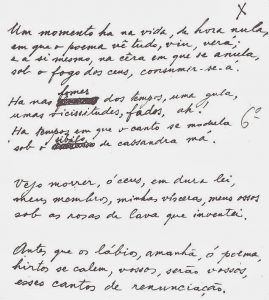 X
Um momento ha na vida, de hora nula,
em que o poema vê tudo, viu, verá,
e a si mesmo, na cêra em que se anula,
sob o fogo dos ceus, consumir-se-á.
Ha nas fomes dos tempos, uma gula,
umas vicissitudes, fados, ah!
Ha tempos em que o canto se modula
sob o sibilo de cassandra má.
6º
Vejo morrer, ó ceus, em dura lei,
meus membros, minhas vísceras, meus ossos
sob as rosas de lava que inventei.
Antes que os lábios, amanhã, ó poema,
hirtos se calem, vossos, serão vossos,
esses cantos de renunciação.